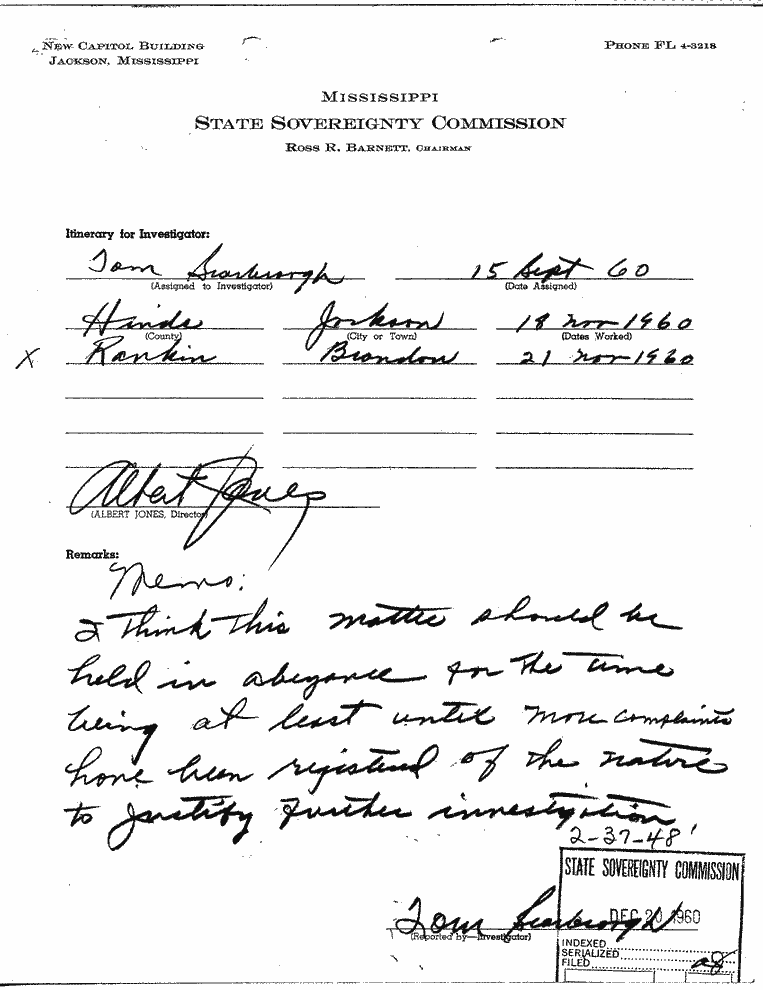 NEW CAPITOL BUILDING
JACKSON, MISSISSIPPI
PHONE FL 4-3218
MISSISSIPPI
STATE SOVEREIGNTY COMMISSION
ROSS R. BARNETT, CHAIRMAN
Itinerary for Investigator:
Tom Scarbrough 15 Sept 60
(Assigned to Investigator) (Date Assigned)
Hinds Jackson 18 Nov 1960
(County) (City or Town) (Dates Worked)
X Rankin Brandon 21 Nov 1960
Albert Jones
(ALBERT JONES, Director)
Remarks:
Memo:
I think this matter should be
held in abeyance for the time
being at least until more complaints
have been registered of the nature
to justify further investigation
2-37-48
STATE SOVEREIGNTY COMMISSION
DEC 20 1960
Tom Scarbrough
(Reported by—Investigator)
INDEXED
SERIALIZED
FILED